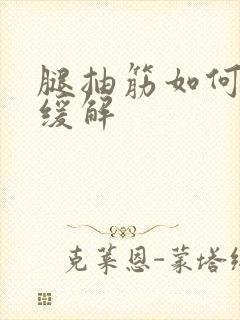 腿抽筋如何
缓解
克莱恩-蒙塔